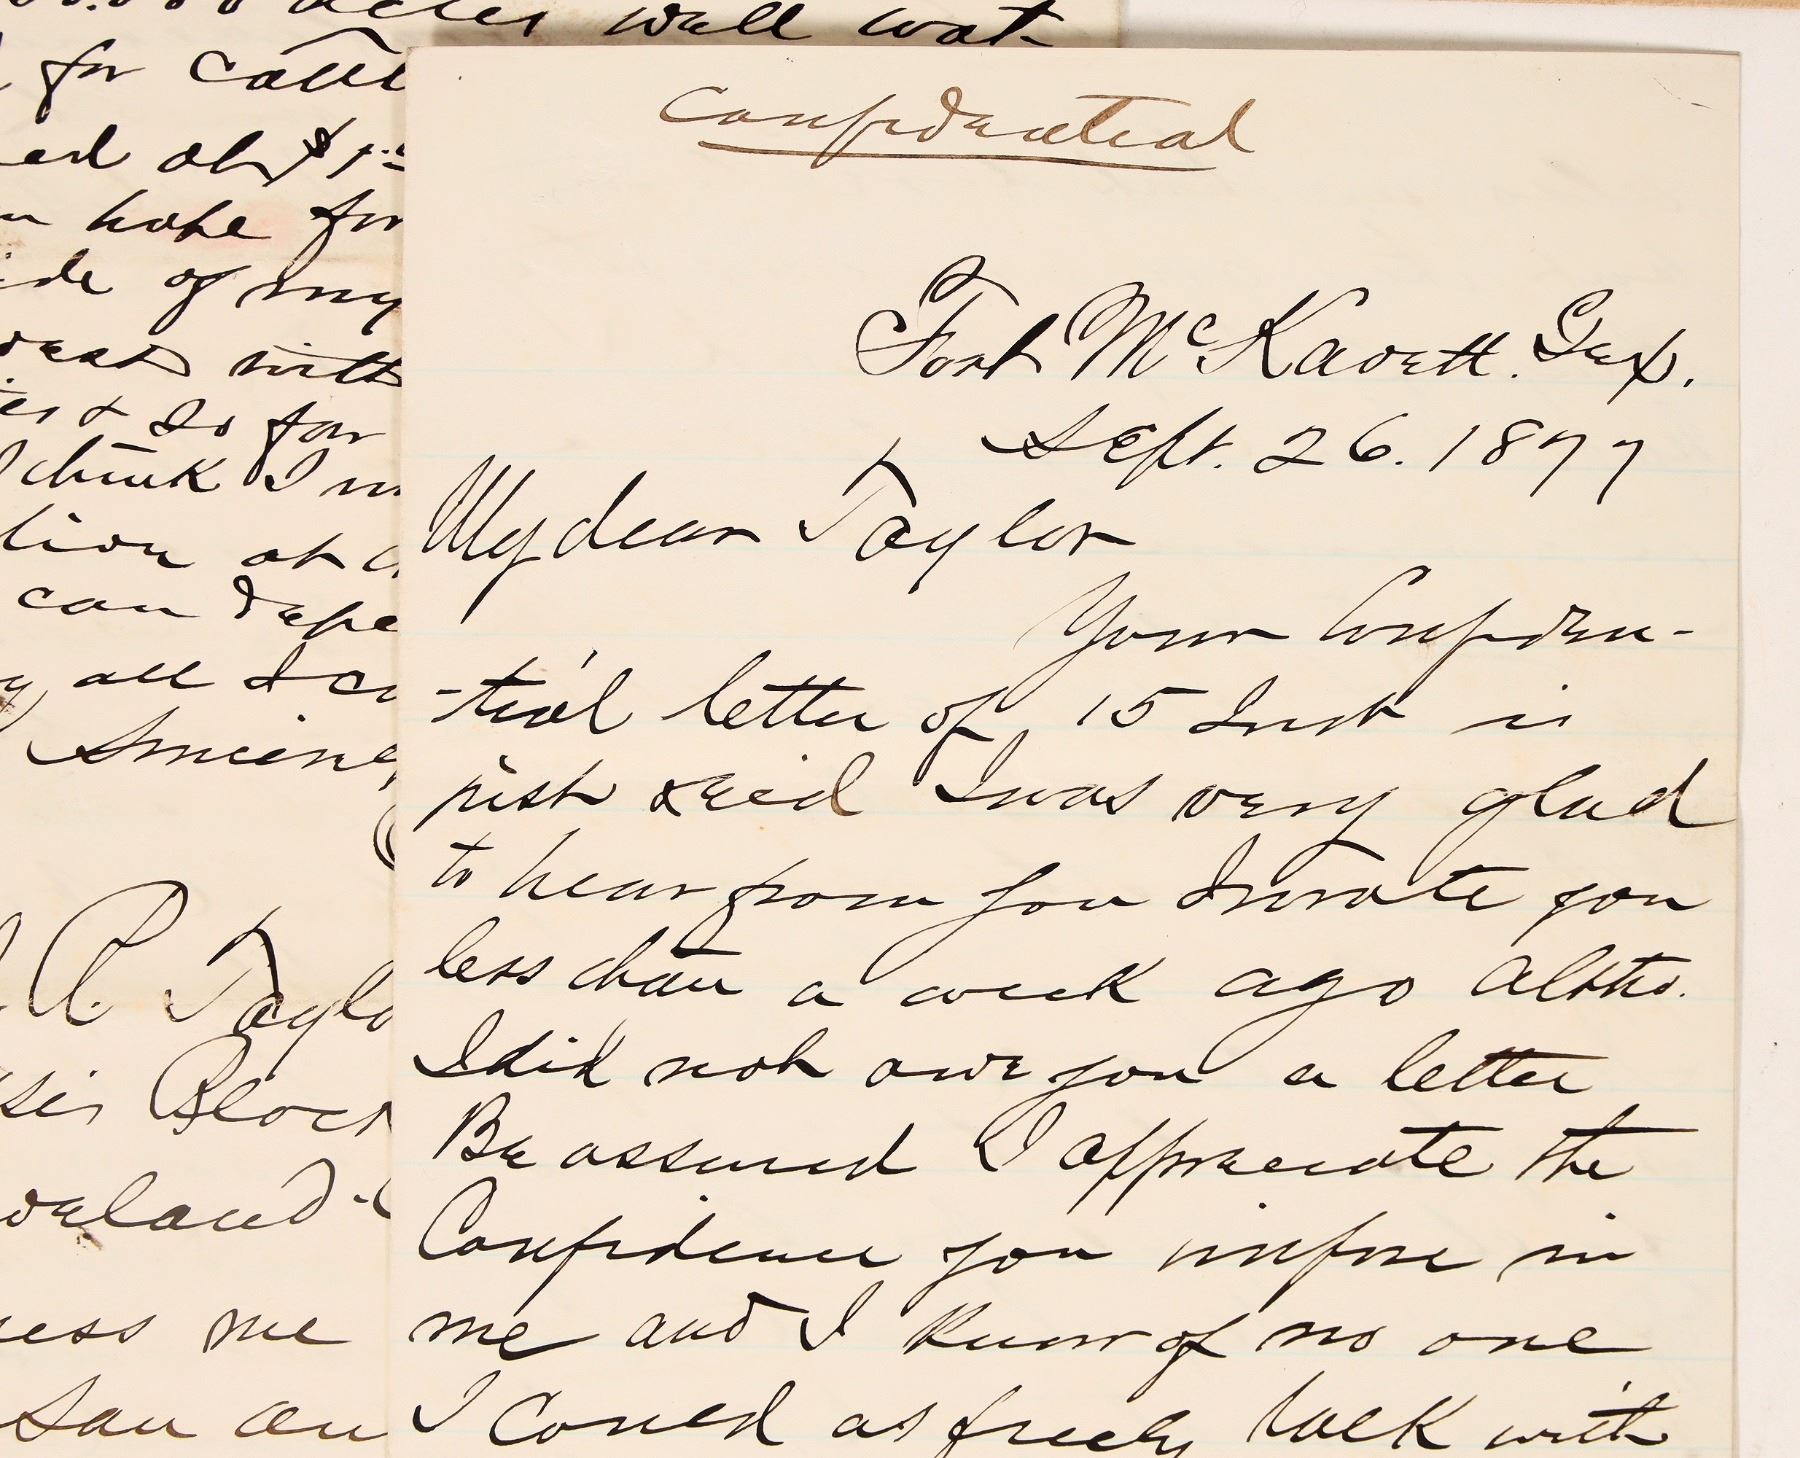 00.000 acres well wat-
for cattl
ed at $1.
hope for
ide of my
west with
& so far
I think I
tion at
can depe
all I c
Sincere
R. Taylo
Block
veland
ress me
San an
Confidential
Fort McKavett. Tex.
Sept. 26. 1877
My dear Taylor
Your Confiden-
-tial letter of 15 Inst is
just recd I was very glad
to hear from you I wrote you
less than a week ago altho.
I did not owe you a letter
Be assured I appreciate the
Confidence you impose in
me and I know of no one
I could as freely talk with